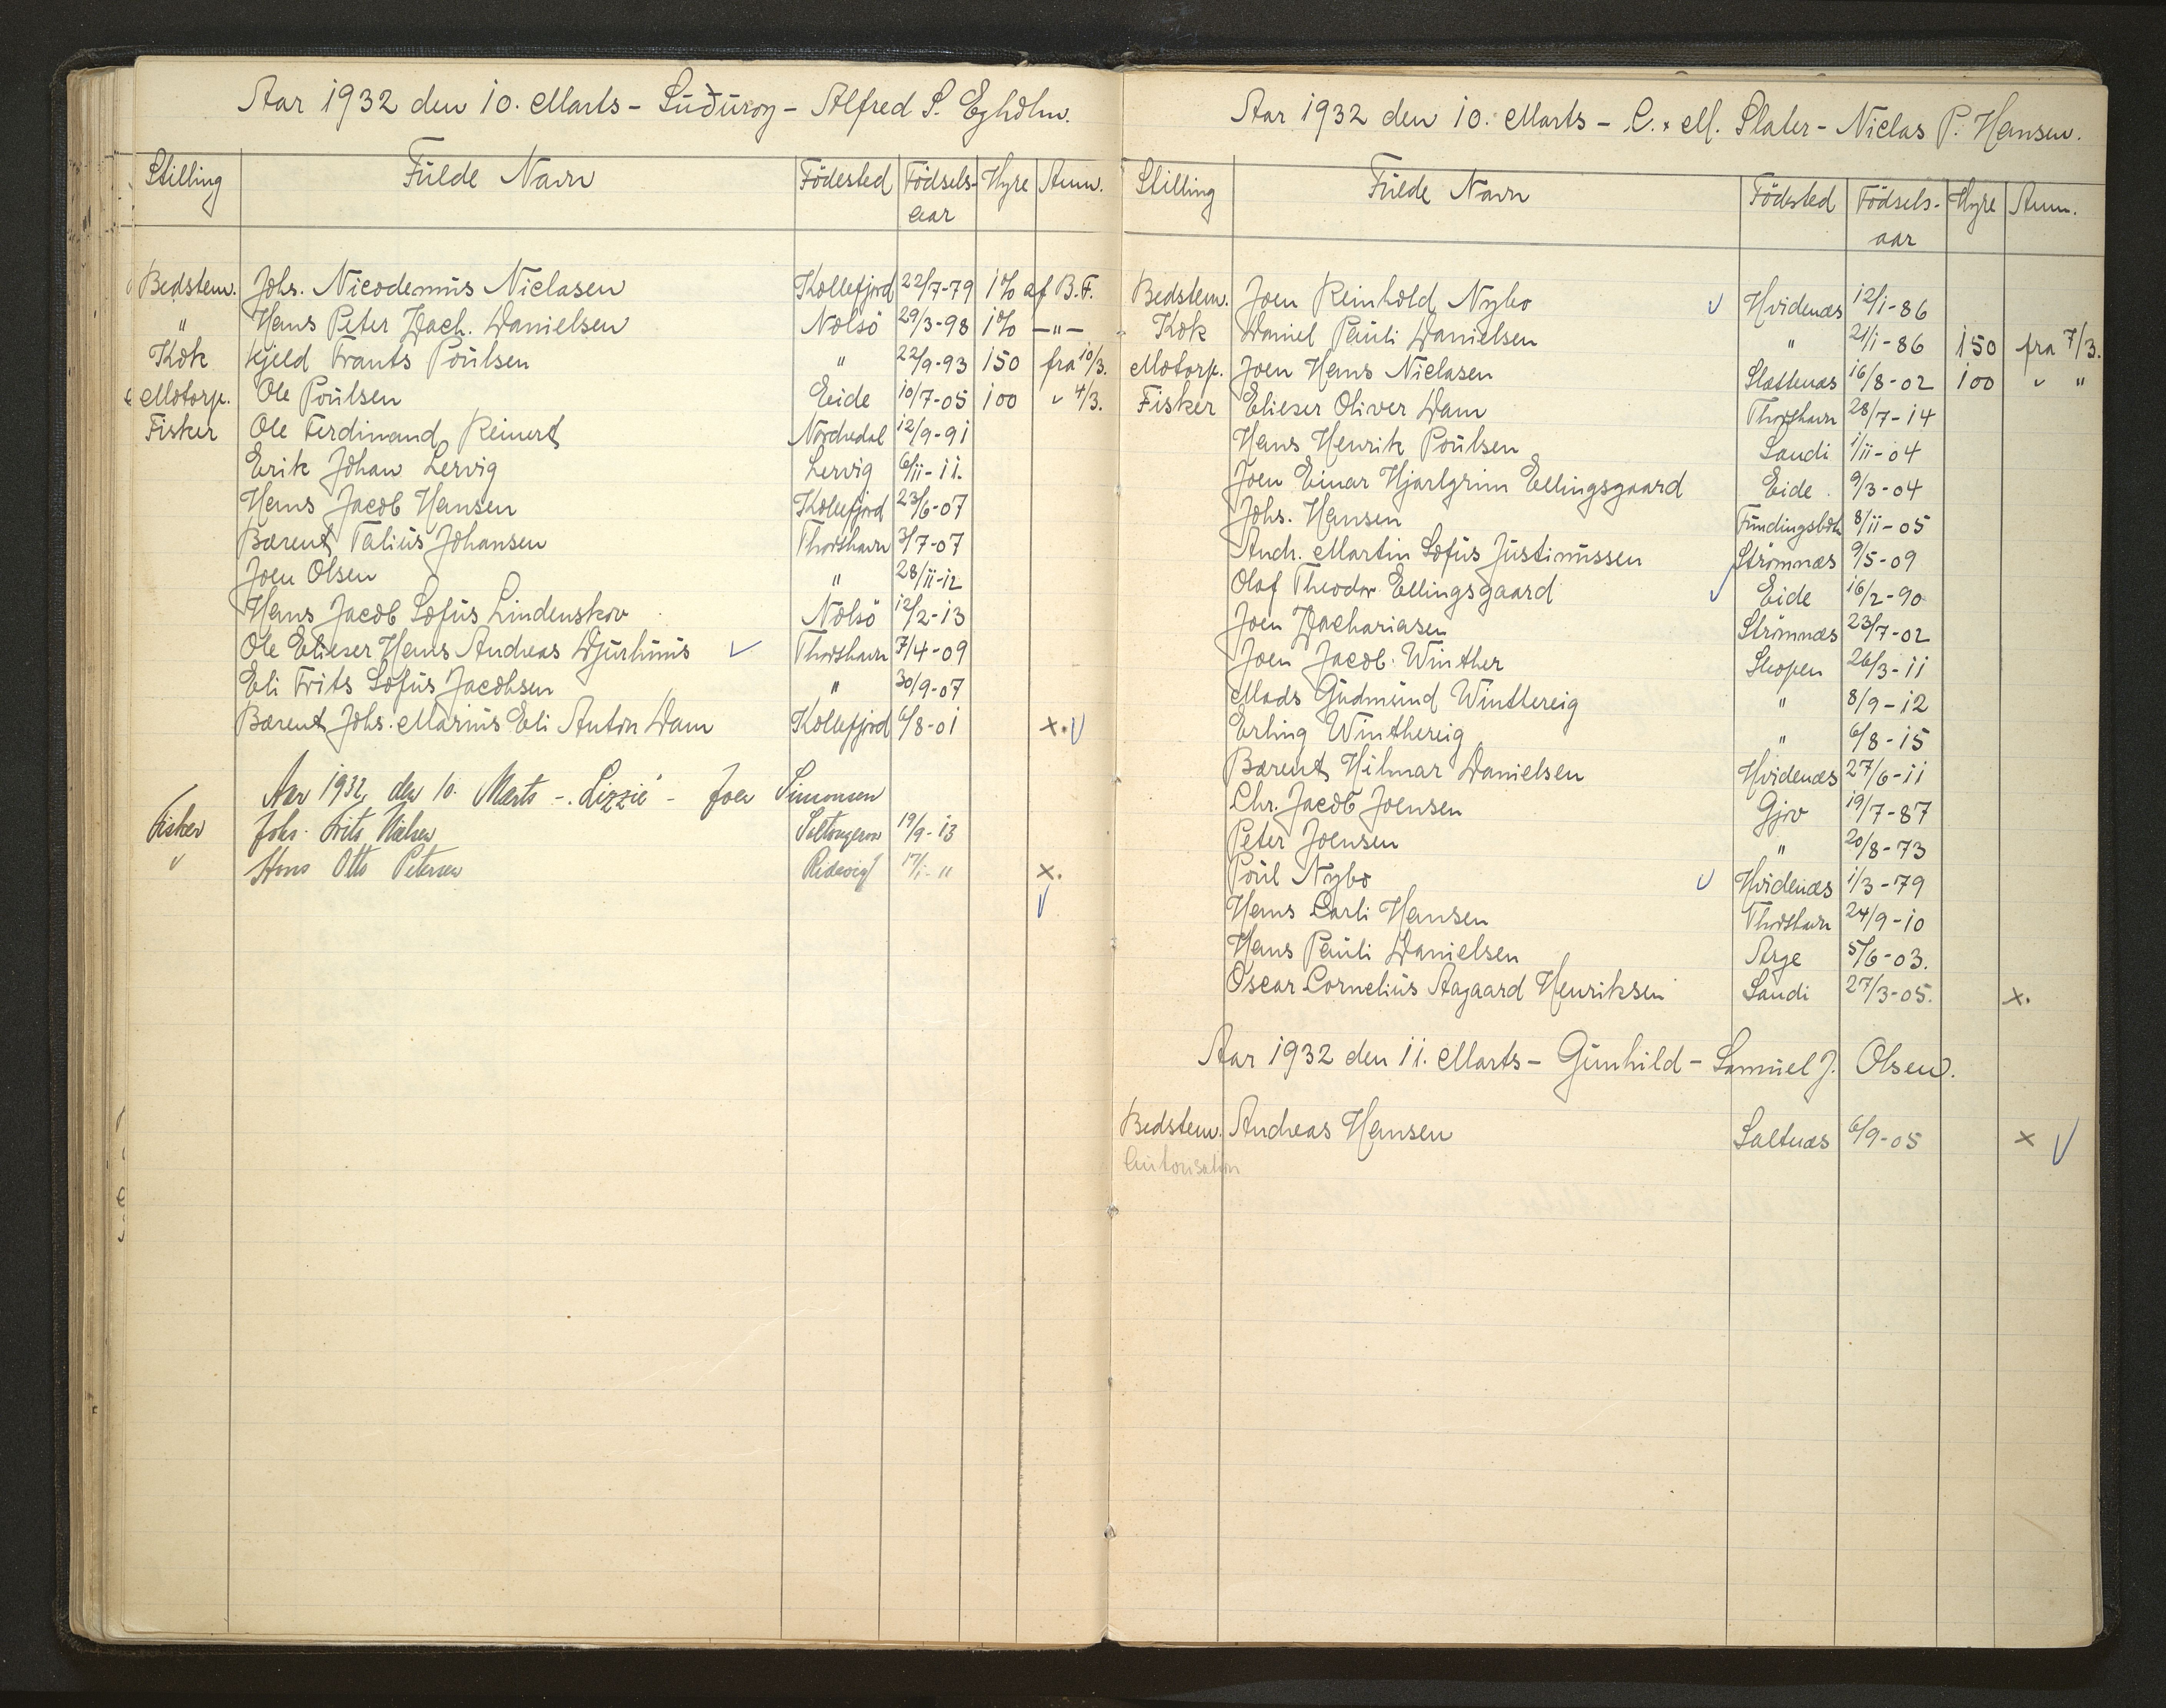 Aar 1932 den 10. Marts - Suðuroy - Alfred S. Egholm.
Stilling Fulde Navn Födested Födsels- Hyre Anm.
aar
Bedstem. Johs. Nicodemus Niclasen Kollefjord 22/7-79 1% af B.F.
" Hans Peter Zach. Danielsen Nolsö 29/3-98 1% -"-
Kok Kjeld Frants Poulsen " 22/9-93 150 fra 10/3.
Motorp. Ole Poulsen Eide 10/7-05 100 " 4/3.
Fisker Ole Ferdinand Reinert Nordredal 12/9-91
Erik Johan Lervig Lervig 6/11-11.
Hans Jacob Hansen Kollefjord 23/6-07
Bærent Talius Johansen Thorshavn 3/7-07
Joen Olsen " 28/11-12
Hans Jacob Sofus Lindenskov Nolsö 12/2-13
Ole Elieser Hans Andreas Djurhuus ✓ Thorshavn 7/4-09
Eli Frits Sofus Jacobsen " 30/9-07
Bærent Johs. Marius Eli Anton Dam Kollefjord 6/8-01 x. ✓
Aar 1932, den 10. Marts - "Lizzie" - Joen Simonsen
Fisker Johs. Frits Nielsen 19/9-13
" Hans Otto Petersen 17/1-" x.
✓
Aar 1932 den 10. Marts - C. & M. Slater - Niclas P. Hansen.
Stilling Fulde Navn Födested Födsels- Hyre Anm.
aar
Bedstem. Joen Reinhold Nybo ✓ Hvidenæs 12/1-86
Kok Daniel Pauli Danielsen " 21/1-86 150 fra 7/3.
Motorp. Joen Hans Niclasen Slættenæs 16/8-02 100 " "
Fisker Elieser Oliver Dam Thorshavn 28/7-14
Hans Henrik Poulsen Sandi 1/11-04
Joen Einar Hjarlgrim Ellingsgaard Eide 9/3-04
Johs. Hansen Fundingsbotn 8/11-05
Andr. Martin Sofus Justinussen Strömnæs 9/5-09
Olaf Theodor Ellingsgaard ✓ Eide 16/2-90
Joen Zachariasen Strömnæs 23/7-02
Joen Jacob Winther Skopen 26/3-11
Mads Gudmund Winthereig " 8/9-12
Erling Winthereig " 6/8-15
Bærent Hilmar Danielsen Hvidenæs 27/6-11
Chr. Jacob Joensen Gjov 19/7-87
Peter Joensen " 20/8-73
Poul Nybo ✓ Hvidenæs 1/3-79
Hans Carli Hansen Thorshavn 24/9-10
Hans Pauli Danielsen Arge 5/6-03.
Oscar Cornelius Aagaard Henriksen Sandi 27/3-05. x.
Aar 1932 den 11. Marts - Gunhild - Samuel J. Olsen.
Bedstem. Andreas Hansen Saltnæs 6/9-05 x ✓
Autorisation